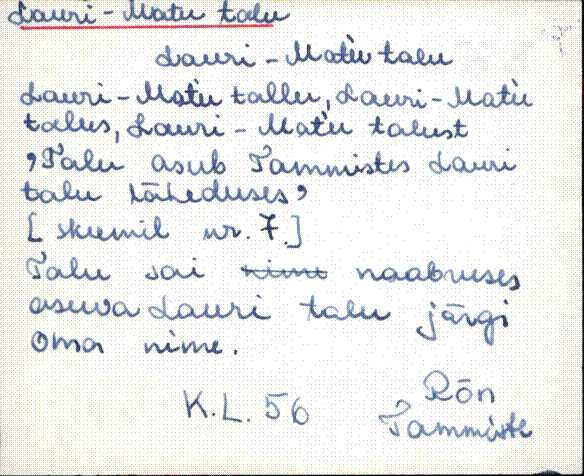 Lauri-Matu talu
Lauri-Mat'u talu
Lauri-Mat'u tallu, Lauri-Mat'u
talus, Lauri-Mat'u talust
"Talu asub Tammistes Lauri
talu läheduses"
[skeemil nr. 7.]
Talu sai nime naabruses
asuva Lauri talu järgi
oma nime.
K.L. 56
Rõn
Tammiste